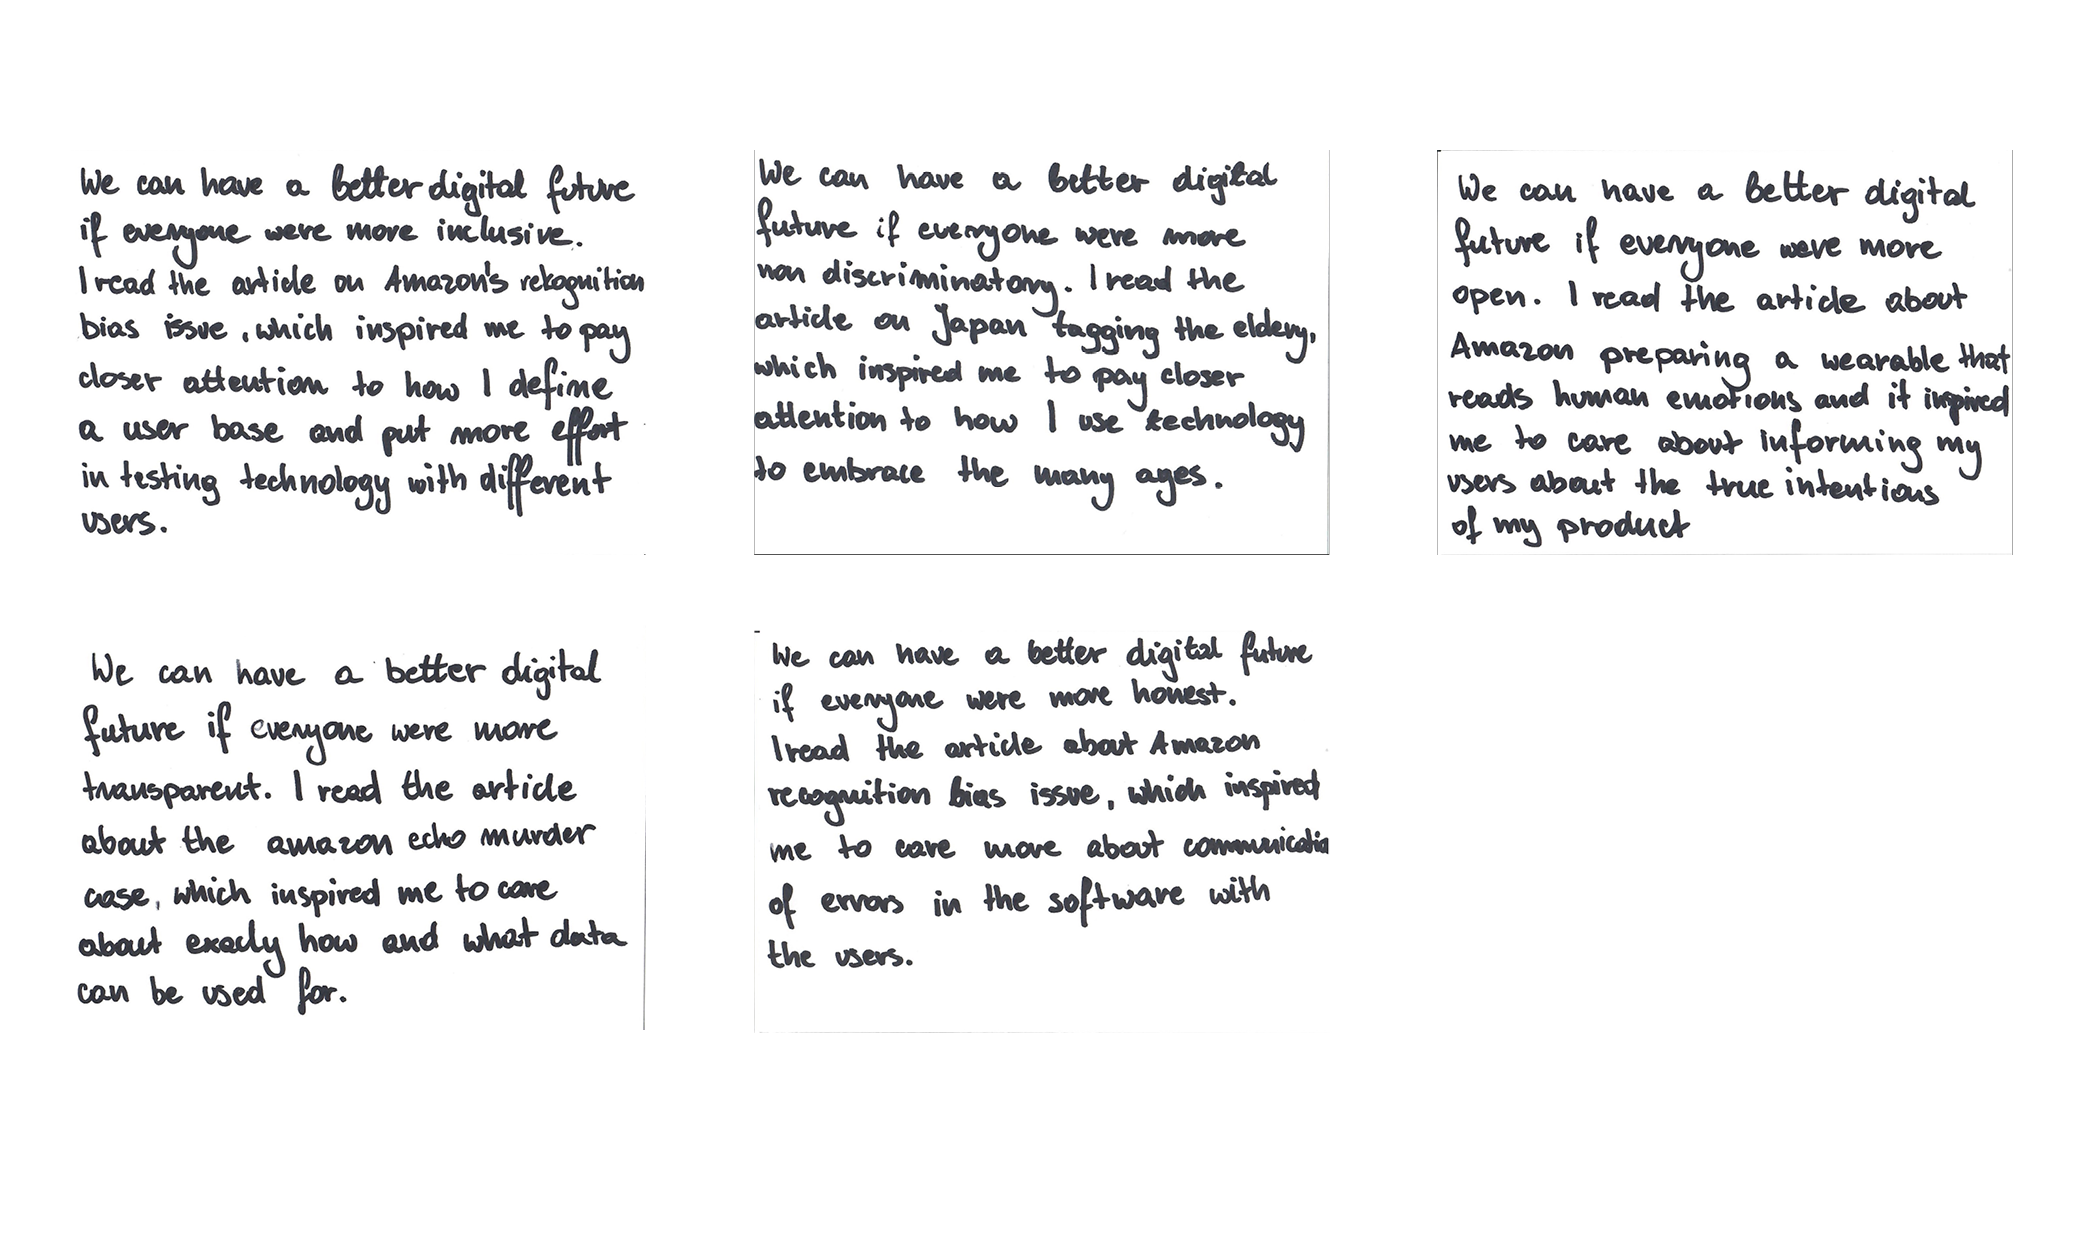 We can have a better digital future
if everyone were more inclusive.
I read the article on Amazon's rekognition
bias issue, which inspired me to pay
closer attention to how I define
a user base and put more effort
in testing technology with different
users.
We can have a better digital
future if everyone were more
non discriminatory. I read the
article on Japan tagging the eldery,
which inspired me to pay closer
attention to how I use technology
to embrace the many ages.
We can have a better digital
future if everyone were more
open. I read the article about
Amazon preparing a wearable that
reads human emotions and it inspired
me to care about informing my
users about the true intentions
of my product
We can have a better digital
future if everyone were more
transparent. I read the article
about the amazon echo murder
case, which inspired me to care
about exacly how and what data
can be used for.
We can have a better digital future
if everyone were more honest.
I read the article about Amazon
recognition bias issue, which inspired
me to care more about communicatio
of errors in the software with
the users.